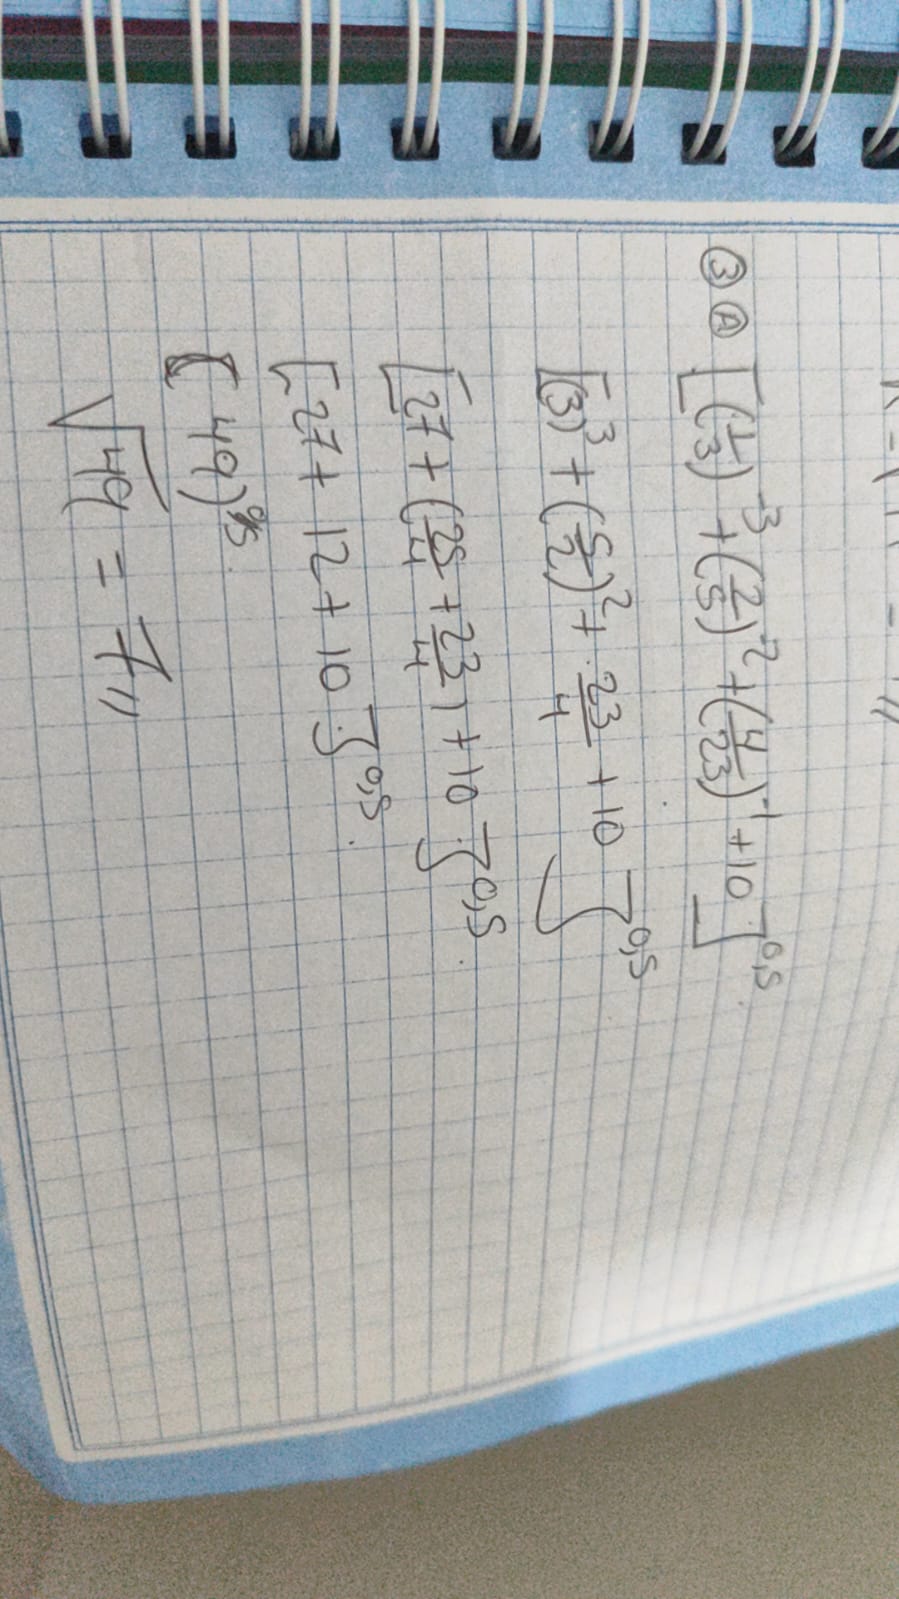 ③ Ⓐ [(1/3)⁻³ + (2/5)⁻² + (4/23)⁻¹ + 10]⁰,⁵
[(3)³ + (5/2)² + 23/4 + 10]⁰,⁵
[27 + (25/4 + 23/4) + 10]⁰,⁵
[27 + 12 + 10]⁰,⁵
(49)⁰,⁵
√49 = 7,,